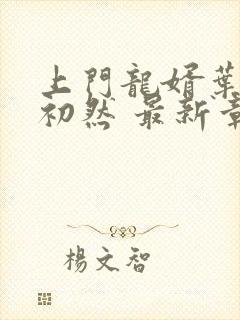 上門龍婿葉
初然 最新章
楊文智